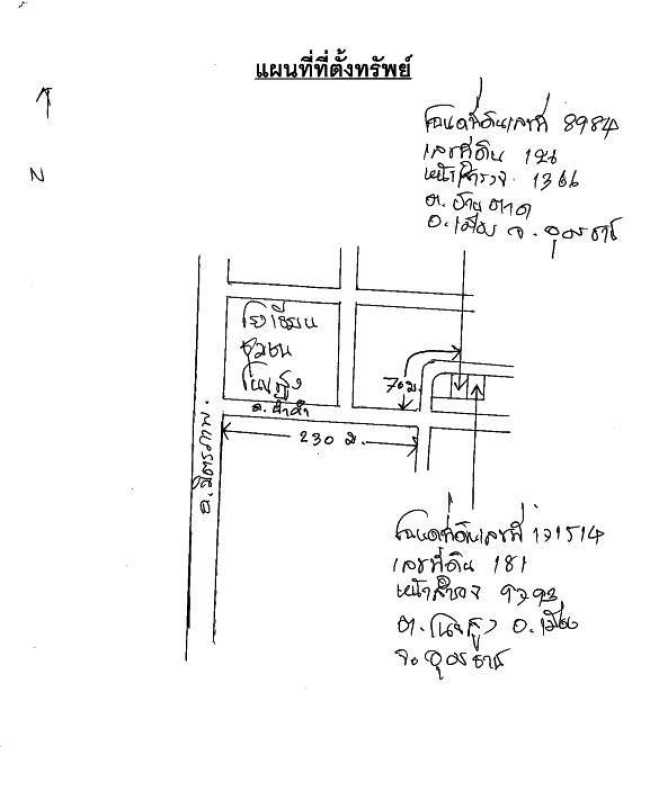 แผนที่ที่ตั้งทรัพย์
N
โฉนดที่ดินเลขที่ 8984
เลขที่ดิน
หน้าสำรวจ 1366
ต. บ้านตาด
อ. เมือง จ. อุดรธานี
โรงเรียน
ชุมชน
โนนสูง
70 ม.
230 ม.
ถ. มิตรภาพ
โฉนดที่ดินเลขที่
เลขที่ดิน 181
หน้าสำรวจ
ต. โนนสูง อ. เมือง
จ. อุดรธานี